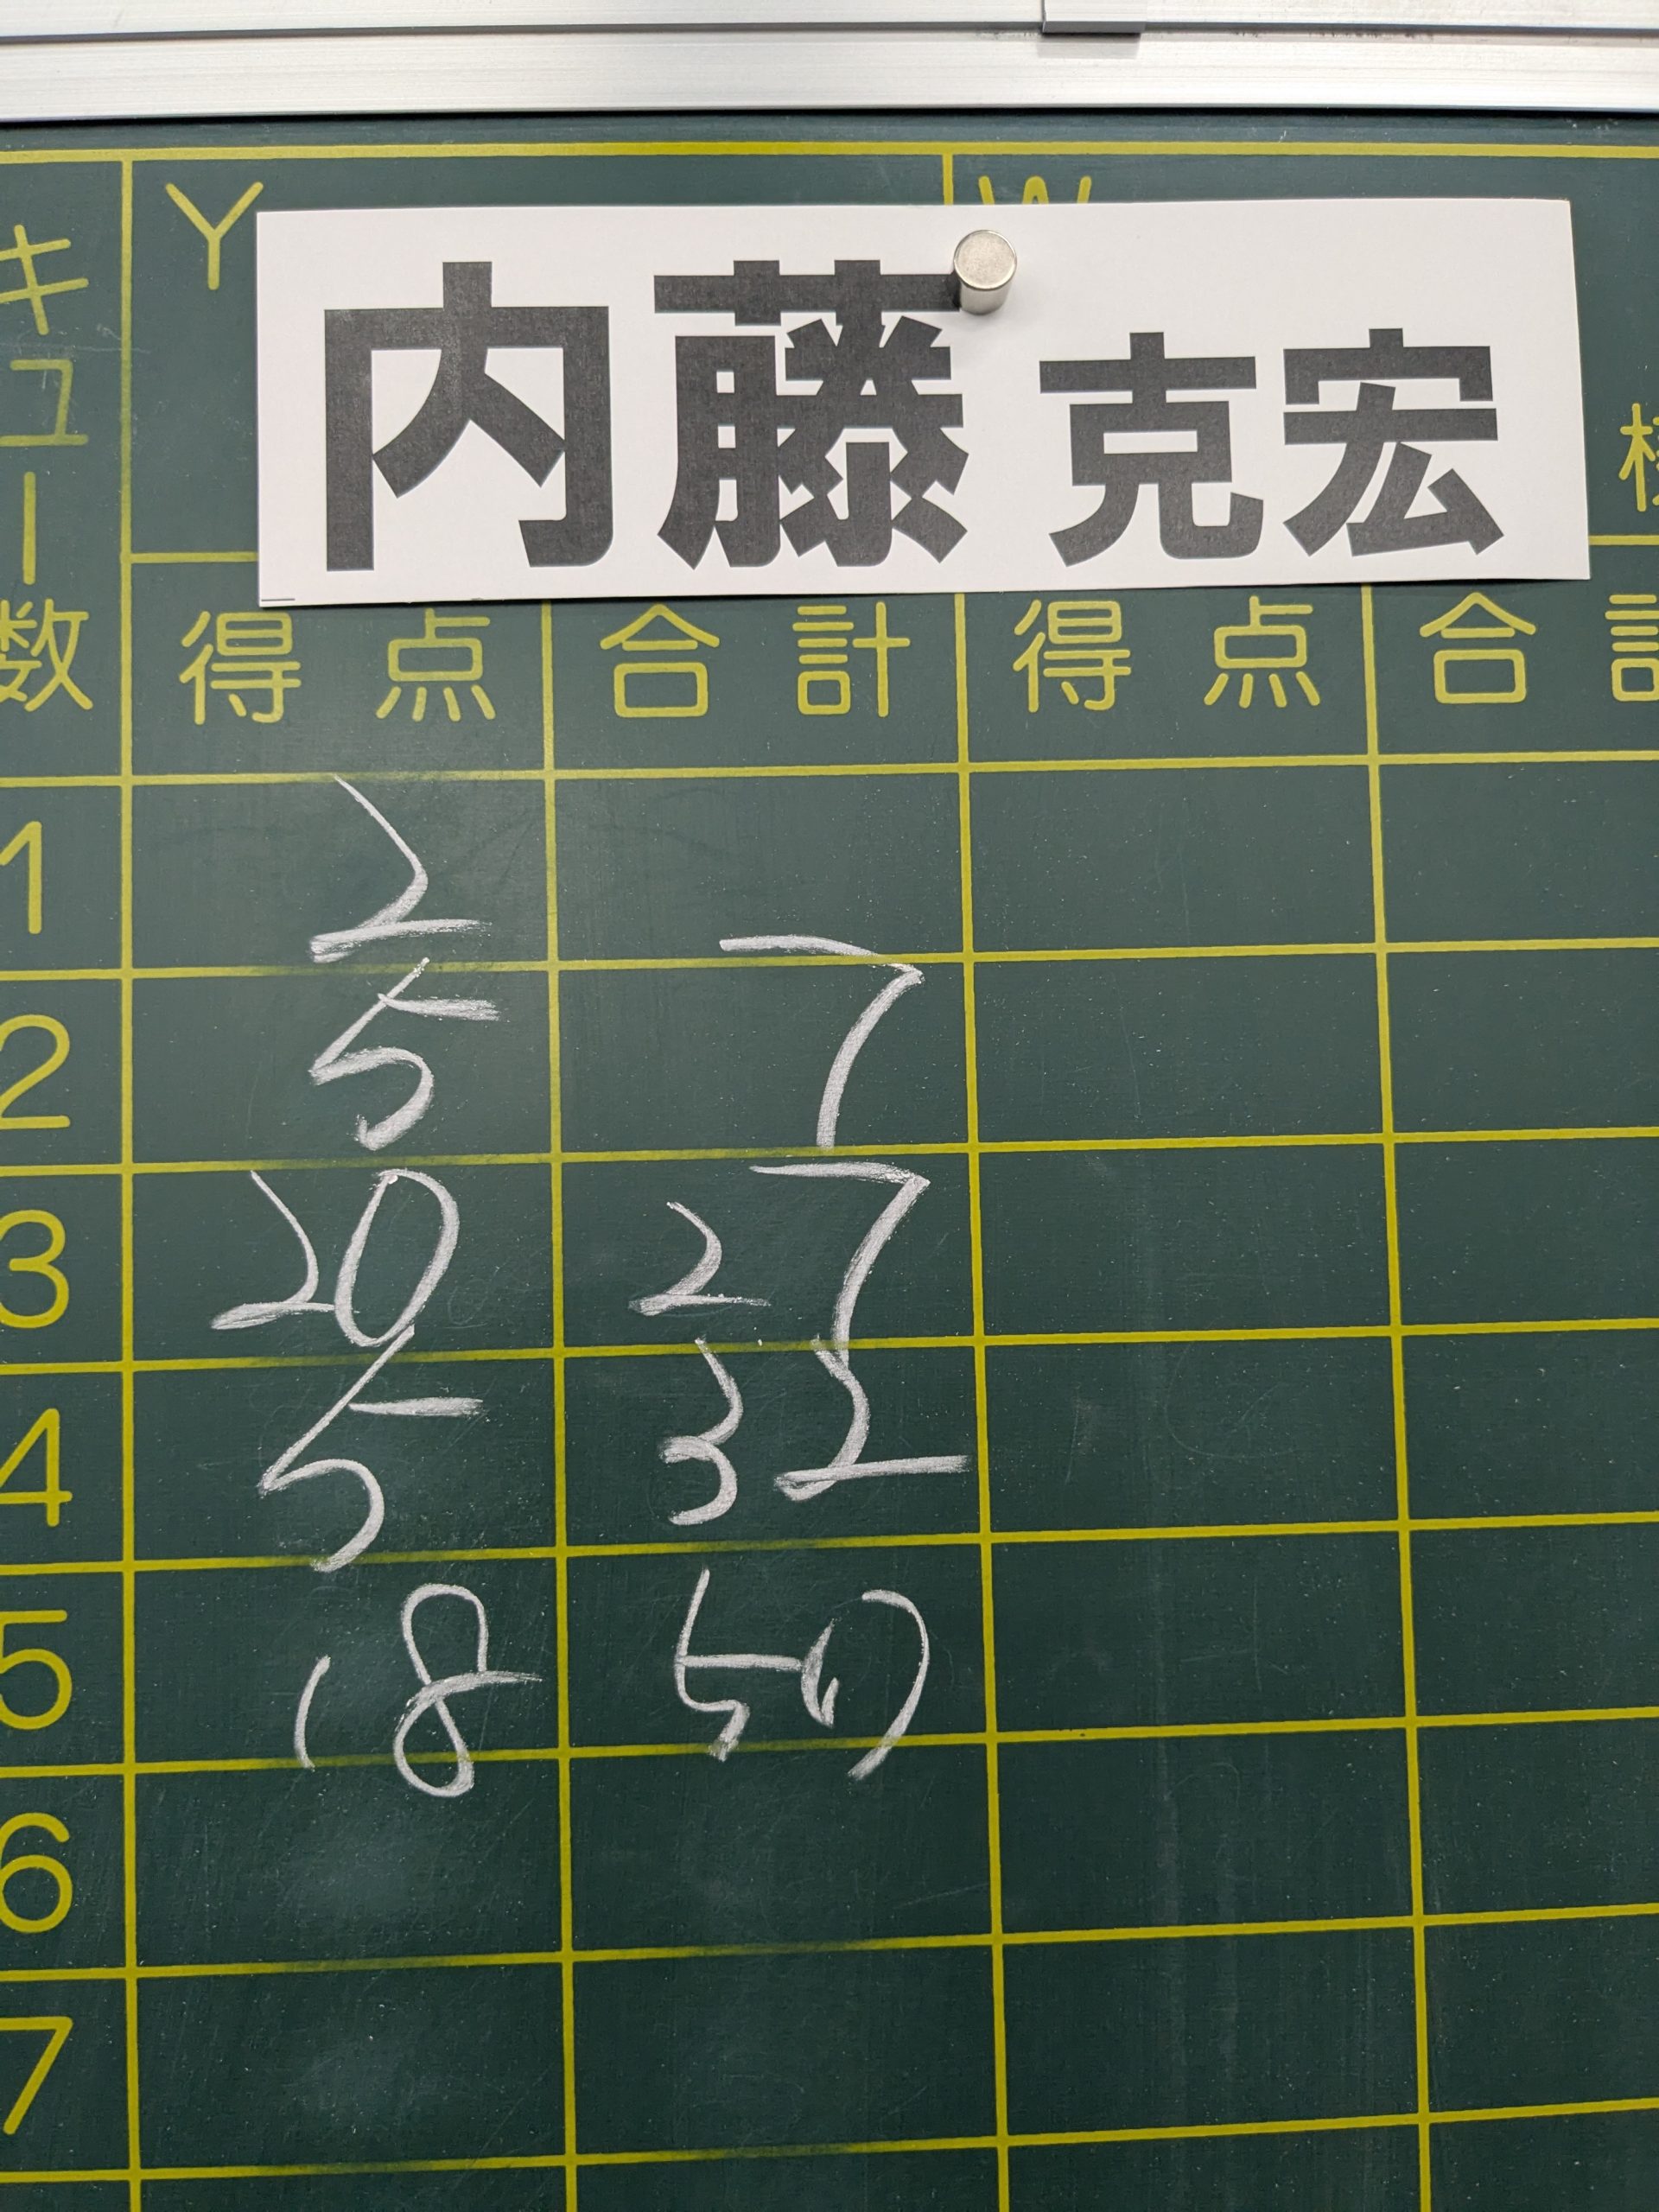 Y W
内藤 克宏
キュー数 得点 合計 得点 合計
1 2
2 5 7
3 20 27
4 5 32
5 18 50
6
7